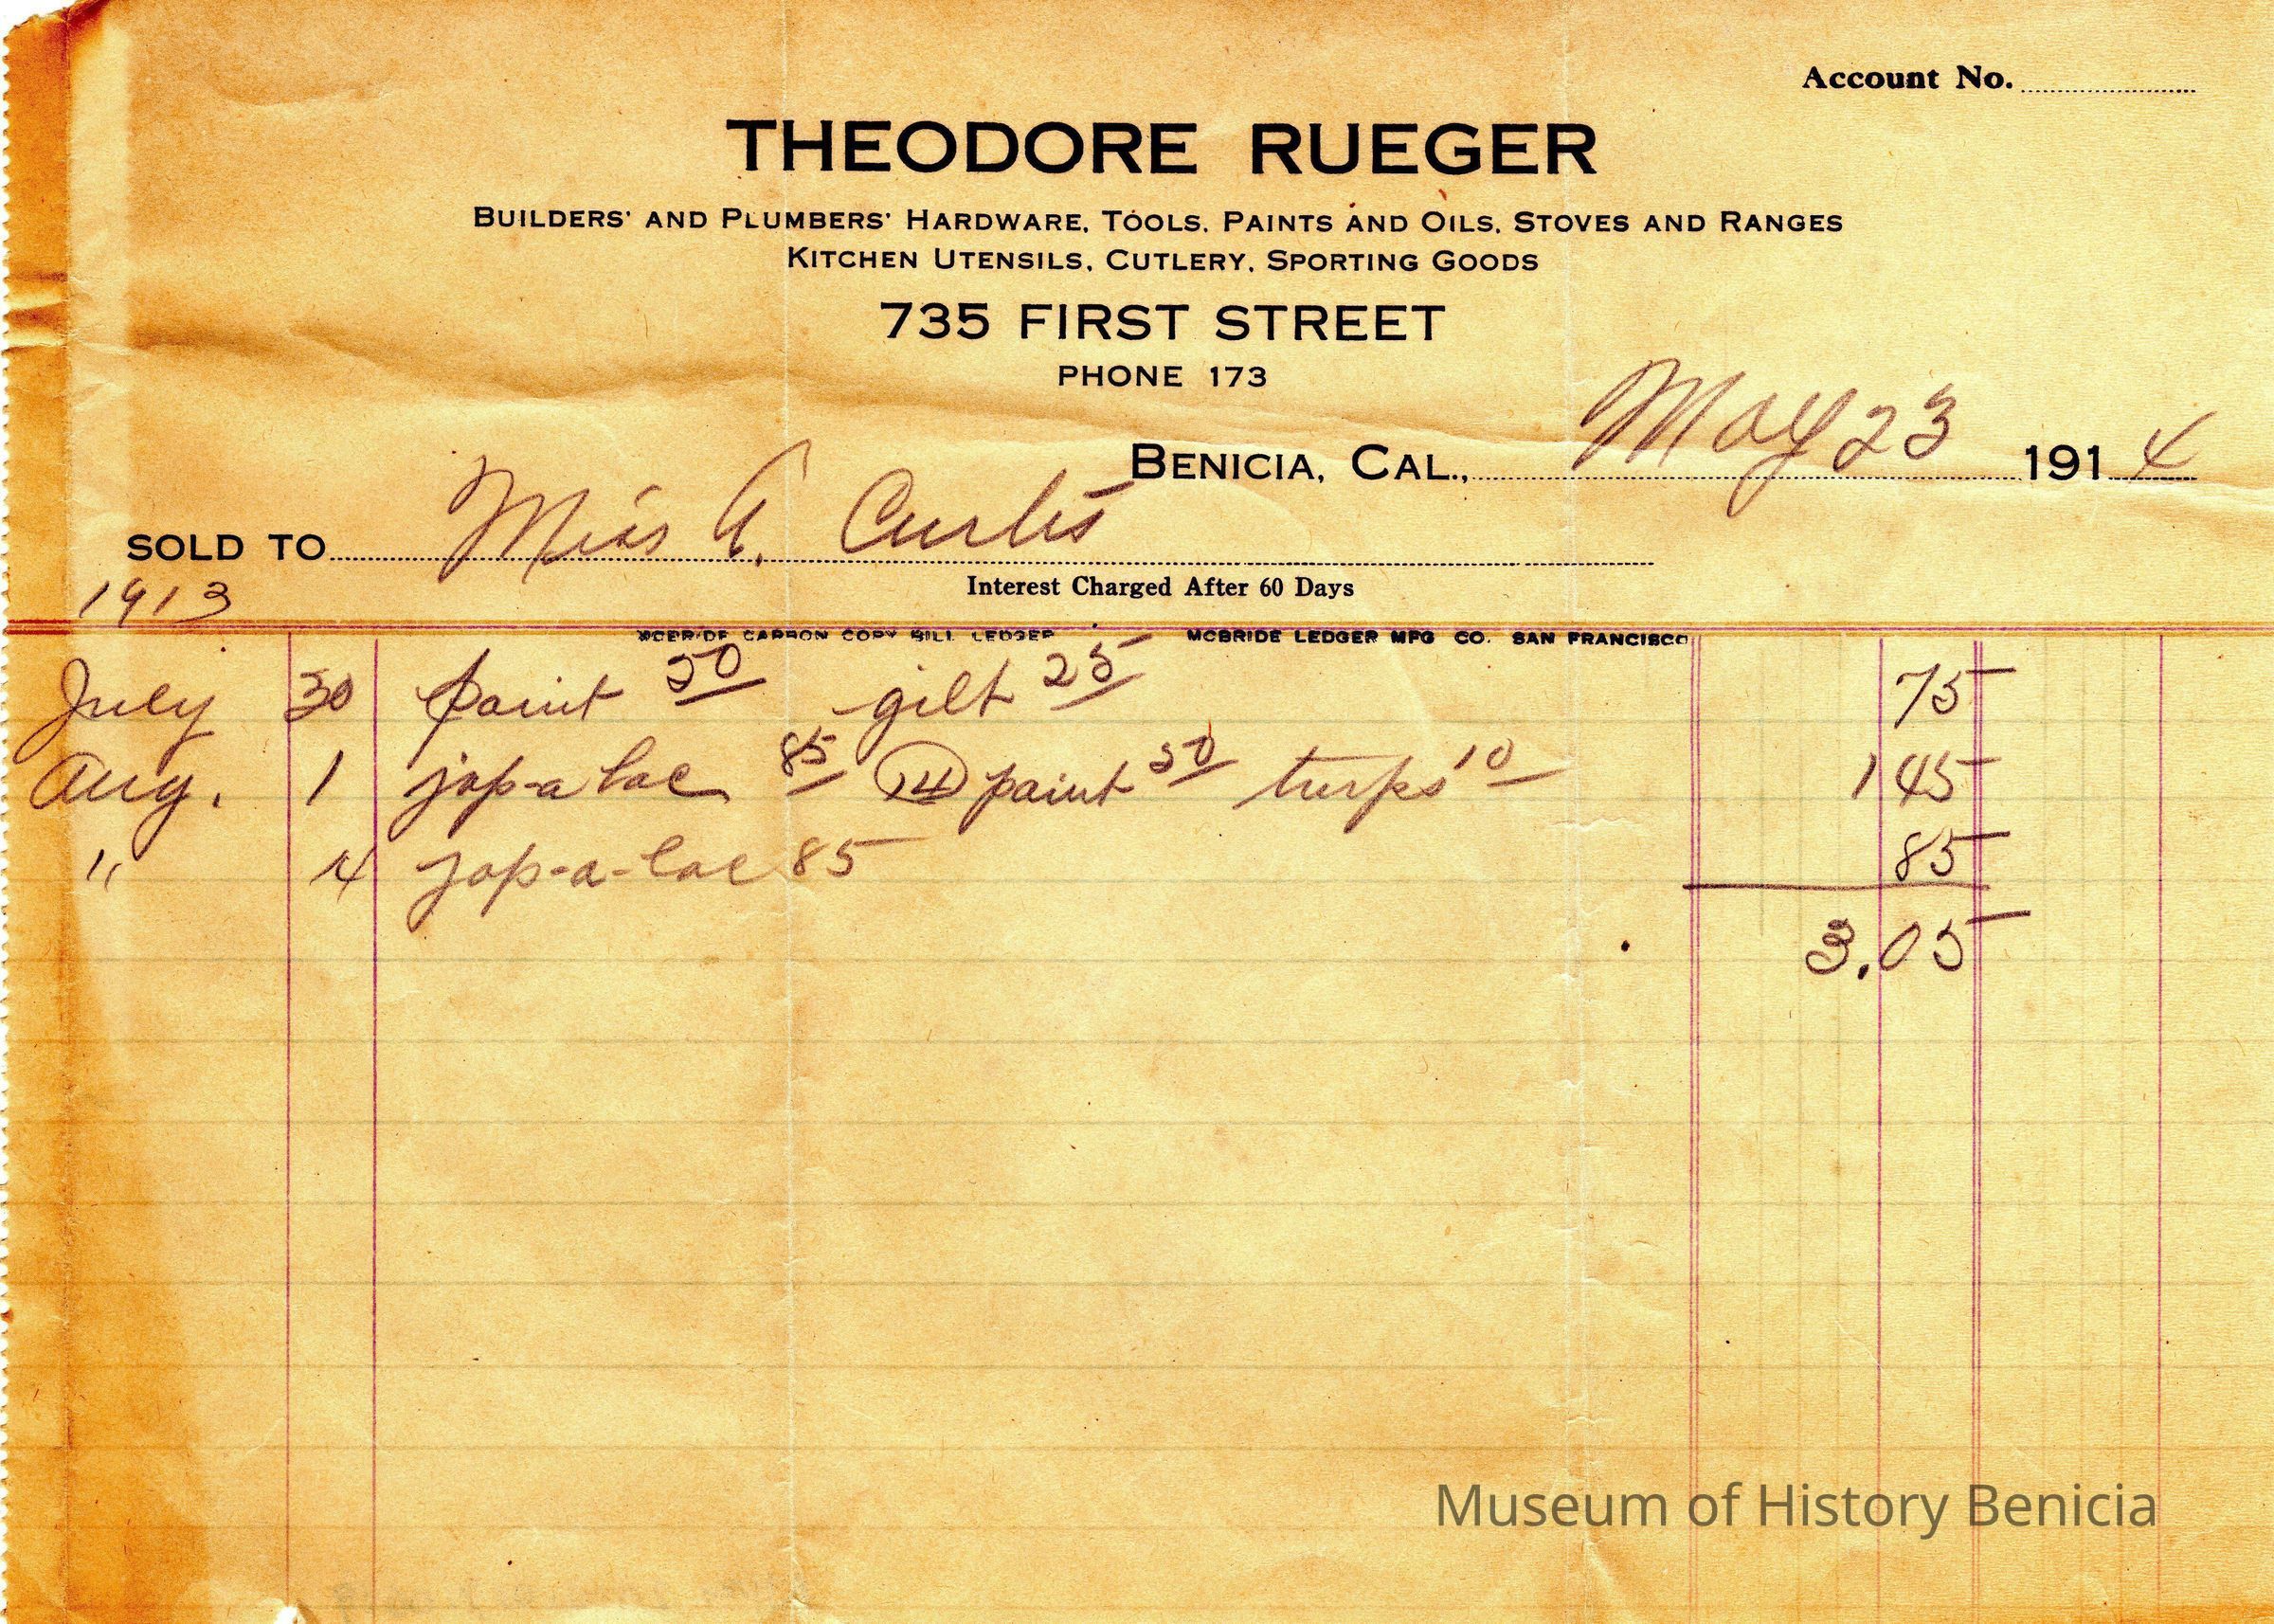 Account No.
THEODORE RUEGER
BUILDERS' AND PLUMBERS' HARDWARE, TOOLS, PAINTS AND OILS, STOVES AND RANGES
KITCHEN UTENSILS, CUTLERY, SPORTING GOODS
735 FIRST STREET
PHONE 173
BENICIA, CAL., May 23 1914
SOLD TO Miss A. Curtis
Interest Charged After 60 Days
1913
MCBRIDE CARBON COPY BILL LEDGER MCBRIDE LEDGER MFG CO. SAN FRANCISCO
July 30 paint 50 gilt 25 75
Aug. 1 jap-a lac 85 (14) paint 50 turps 10 1 45
" 4 jap-a-lac 85 85
3.05
Museum of History Benicia